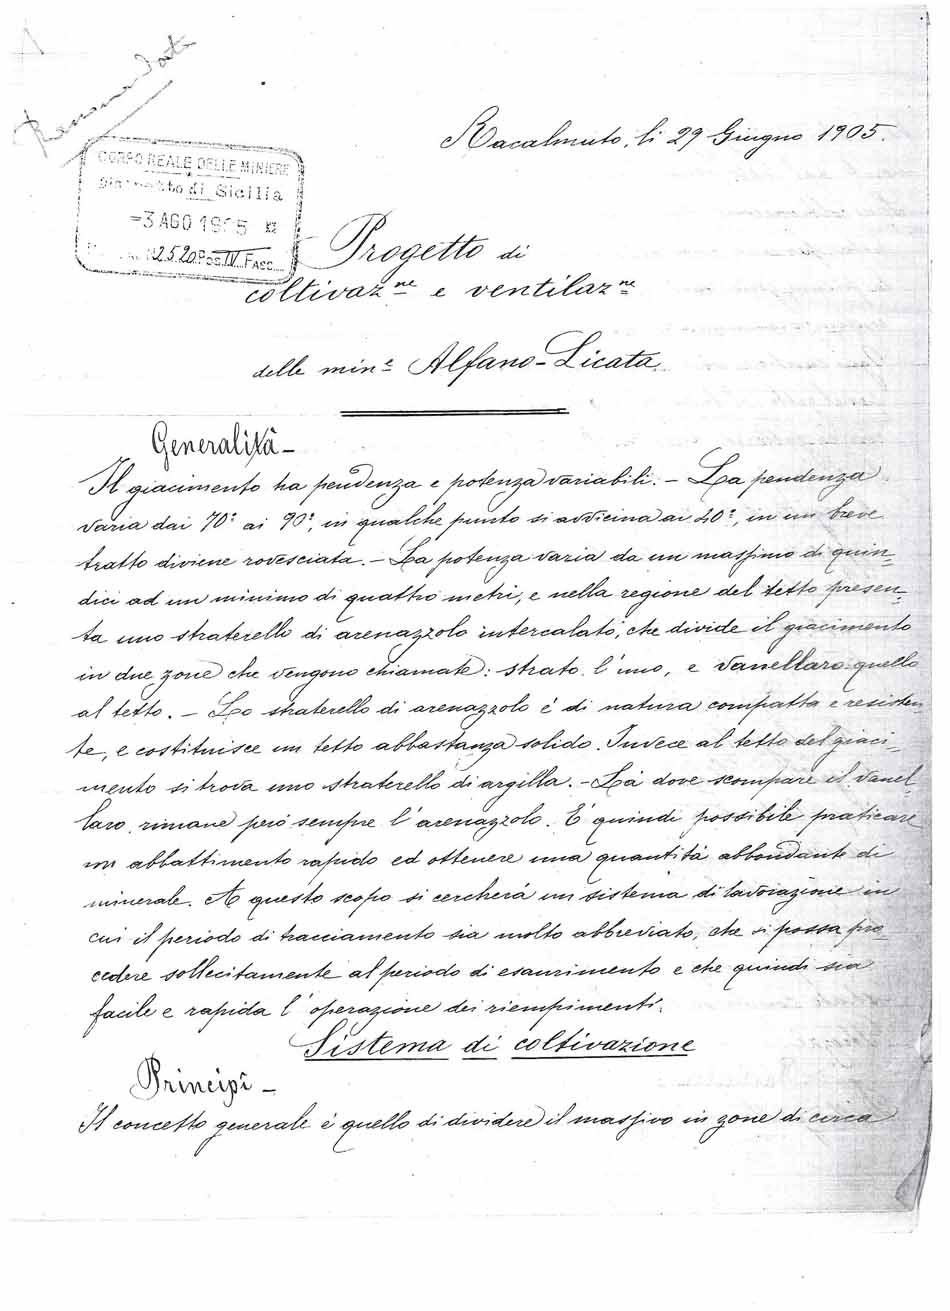 Racalmuto, li 29 Giugno 1905.
CORPO REALE DELLE MINIERE
di Sicilia
-3 AGO 1905
2520 Pos. IV Fasc.
Progetto di
coltivaz.ne e ventilaz.ne
delle min.e Alfano-Licata.
Generalità -
Il giacimento ha pendenza e potenza variabili. - La pendenza
varia dai 70° ai 90°, in qualche punto si avvicina ai 40°, in un breve
tratto diviene rovesciata. - La potenza varia da un massimo di quin-
dici ad un minimo di quattro metri, e nella regione del tetto presen-
ta uno straterello di arenazzolo intercalato, che divide il giacimento
in due zone che vengono chiamate: strato l'uno, e vanellaro quello
al tetto. - Lo straterello di arenazzolo è di natura compatta e resisten-
te, e costituisce un tetto abbastanza solido. Invece al tetto del giaci-
mento si trova uno straterello di argilla. - Là dove scompare il vanel-
laro, rimane però sempre l'arenazzolo. È quindi possibile praticare
un abbattimento rapido ed ottenere una quantità abbondante di
minerale. A questo scopo si cercherà un sistema di lavorazione in
cui il periodo di tracciamento sia molto abbreviato, che si possa pro-
cedere sollecitamente al periodo di esaurimento e che quindi sia
facile e rapida l'operazione dei riempimenti.
Sistema di coltivazione
Principî -
Il concetto generale è quello di dividere il massivo in zone di circa